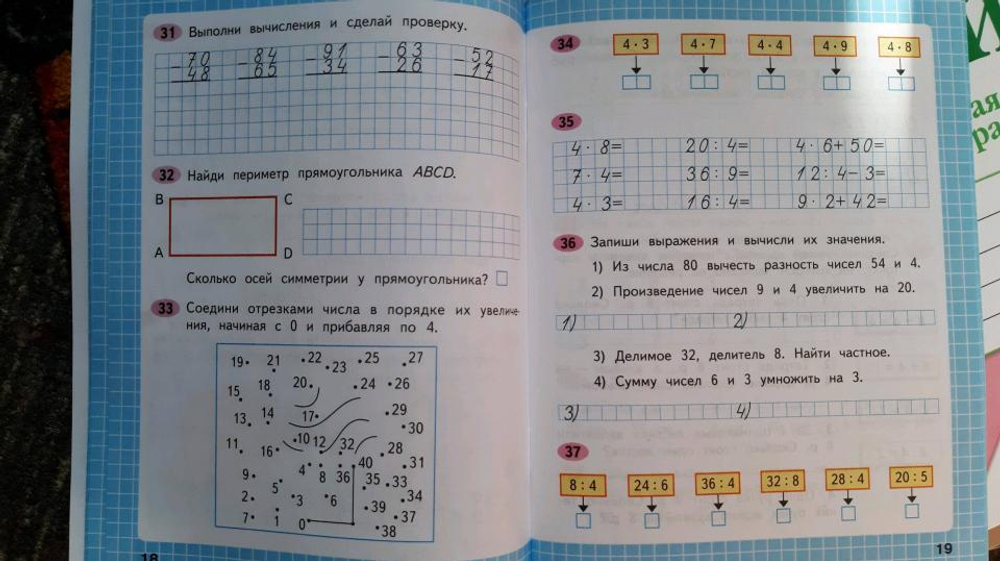 31 Выполни вычисления и сделай проверку.
− 70 − 84 − 91 − 63 − 52
48 65 34 26 17
32 Найди периметр прямоугольника ABCD.
B C
A D
Сколько осей симметрии у прямоугольника?
33 Соедини отрезками числа в порядке их увеличе-
ния, начиная с 0 и прибавляя по 4.
19 21 22 23 25 27
15 18 20 24 26
13 14 17 29
30
11 16 10 12 32 28
9 4 8 36 40 31
5 35 33
2 3 6 34
39
7 1 0 37
38
18
34 4 · 3 4 · 7 4 · 4 4 · 9 4 · 8
35
4 · 8= 20 : 4= 4 · 6+50=
7 · 4= 36 : 9= 12 : 4−3=
4 · 3= 16 : 4= 9 · 2+42=
36 Запиши выражения и вычисли их значения.
1) Из числа 80 вычесть разность чисел 54 и 4.
2) Произведение чисел 9 и 4 увеличить на 20.
1) 2)
3) Делимое 32, делитель 8. Найти частное.
4) Сумму чисел 6 и 3 умножить на 3.
3) 4)
37
8 : 4 24 : 6 36 : 4 32 : 8 28 : 4 20 : 5
19